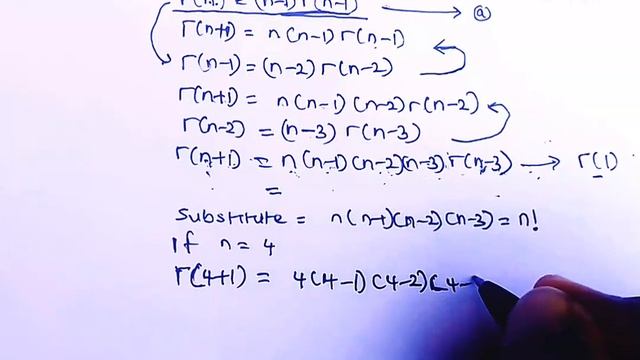 Γ(n) = (n-1) Γ(n-1) → ⓐ
Γ(n+1) = n(n-1) Γ(n-1)
Γ(n-1) = (n-2) Γ(n-2)
Γ(n+1) = n(n-1) (n-2) Γ(n-2)
Γ(n-2) = (n-3) Γ(n-3)
Γ(n+1) = n(n-1) (n-2)(n-3).Γ(n-3) → Γ(1)
=
Substitute = n(n-1)(n-2)(n-3) = n!
If n = 4
Γ(4+1) = 4(4-1) (4-2)(4-